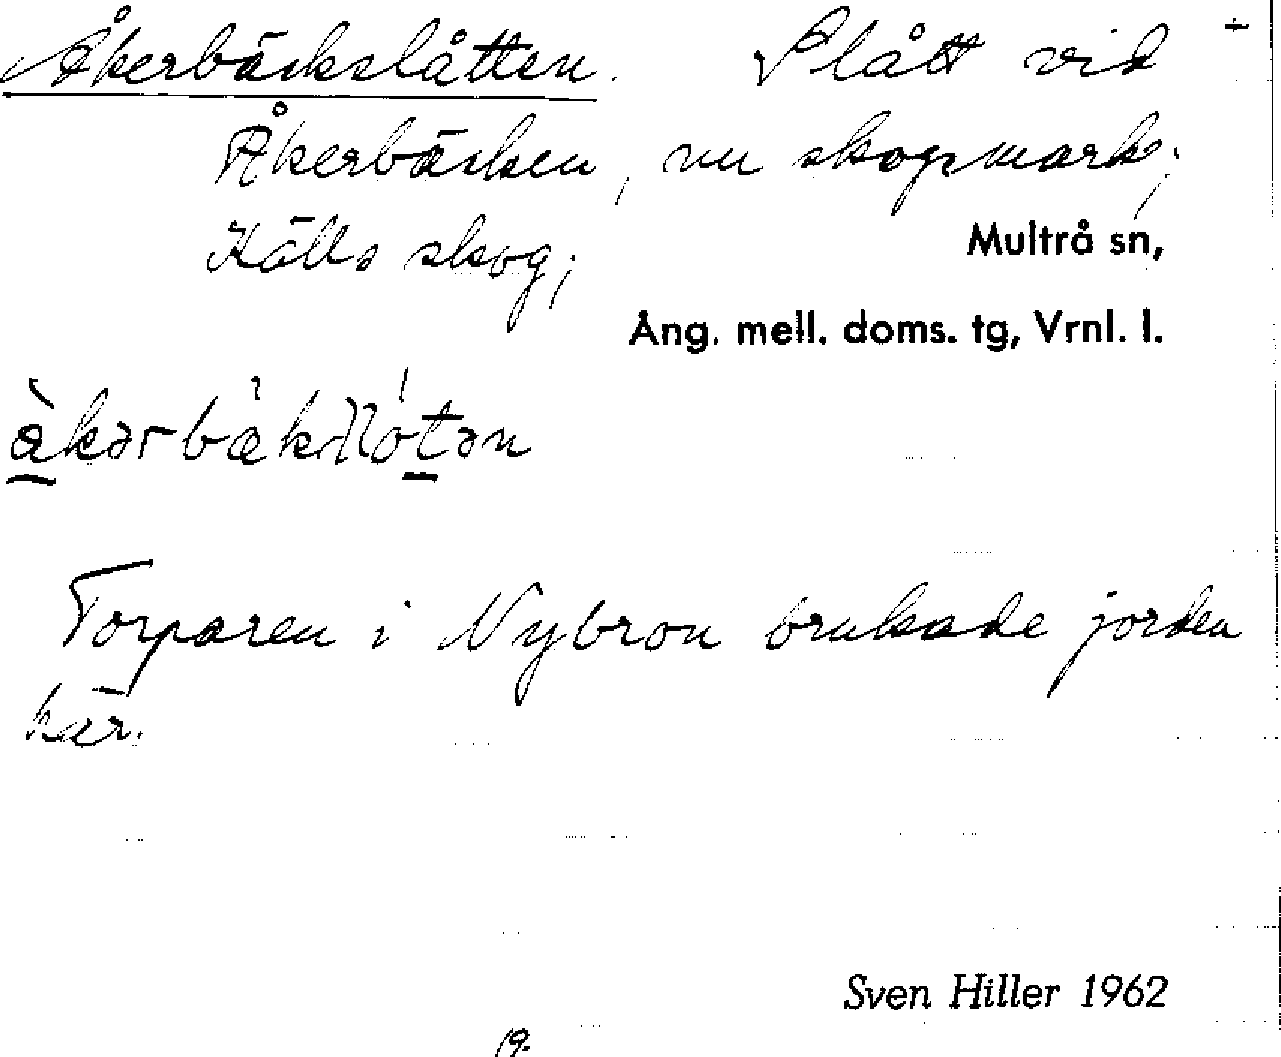 Åkerbäckslåtten. Slått vid +
Åkerbäcken, nu skogsmark;
Källs skog; Multrå sn,
Ång. mell. doms. tg, Vrnl. l.
Torparen i Nybron brukade jorden
här.
Sven Hiller 1962
19.